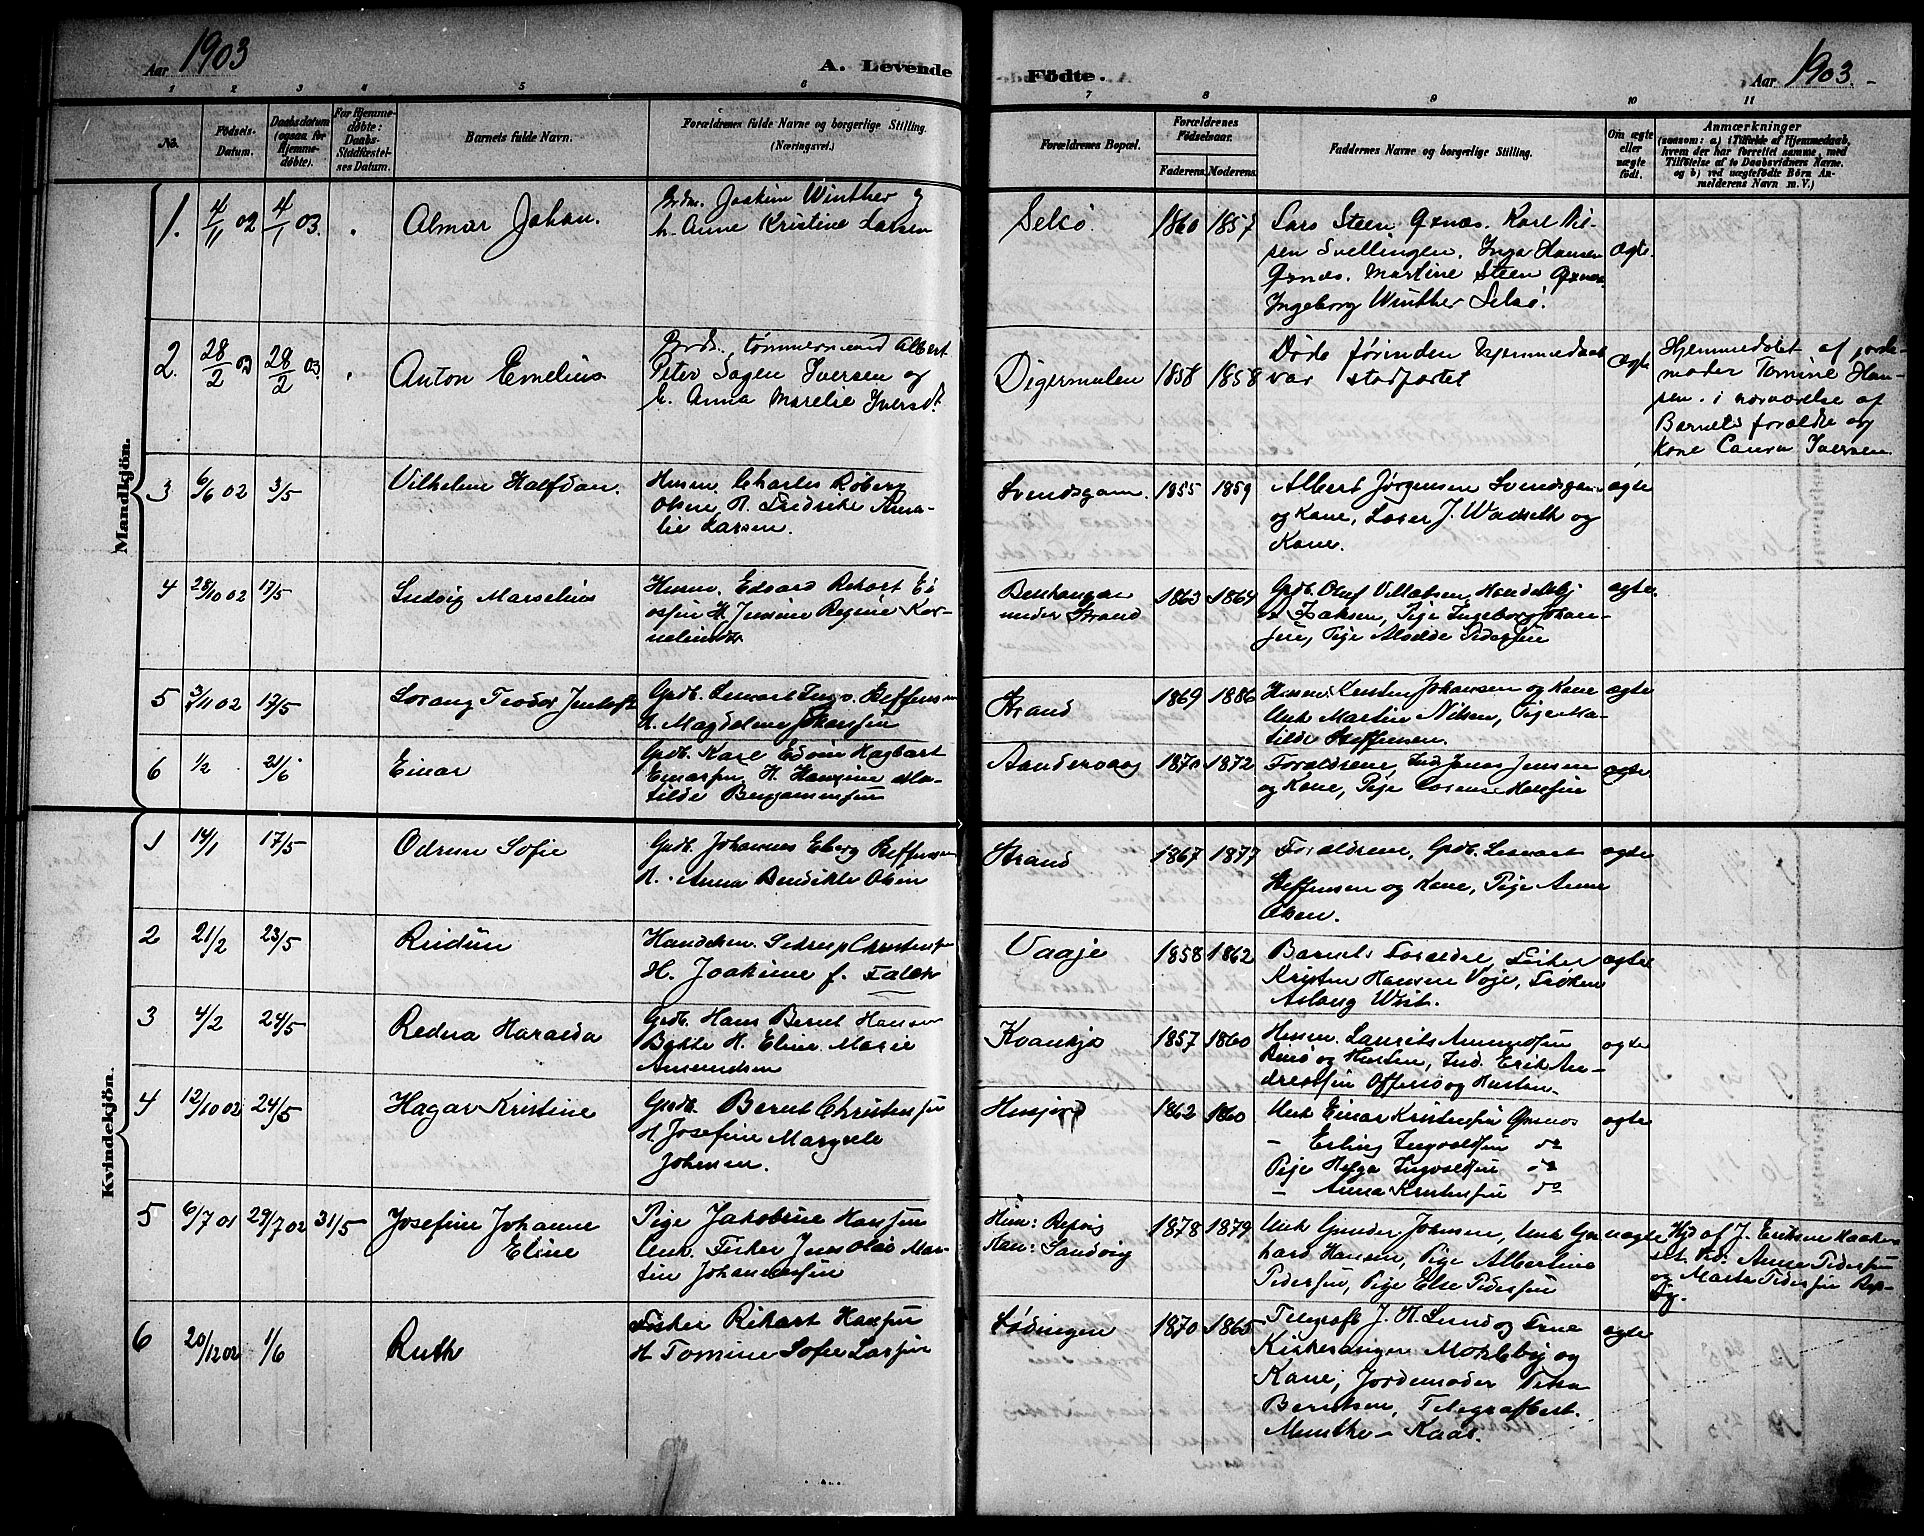 Aar 1903
A. Levende
Födte.
Aar 1903.
1 2 3 4 5 6 7 8 9 10 11
No.
Födsels-
Datum.
Daabsdatum
(ogsaa for
Hjemme-
döbte).
For Hjemme-
döbte:
Daabs-
Stadfæstel-
ses Datum.
Barnets fulde Navn.
Forældrenes fulde Navne og borgerlige Stilling.
(Næringsvei.)
Forældrenes Bopæl.
Forældrenes
Födselsaar.
Faderens. Moderens.
Faddernes Navne og borgerlige Stilling.
Om ægte
eller
uægte
födt.
Anmærkninger
(saasom: a) i Tilfælde af Hjemmedaab,
hvem der har forrettet samme, med
Tilföielse af to Daabsvidners Navne.
og b) ved uægtefödte Börn An-
melderens Navn m. V.)
Mandkjön.
1. 4/11 02 4/1 03. Almar Johan.
Joakim Winther og
h. Anne Kristine Larsen
Selsö. 1860 1857
Lars Steen Oxnæs. Karl Ni-
sen Svellingen. Inga Hansen
Oxnæs. Martine Steen Oxnæs.
Ingeborg Winther Selsö.
ægte.
2. 28/2 03 28/2 03. Anton Emelius
tömmermand Albert
Peter Sagen Iversen og
h. Anna Marelie Iversdt.
Digermulen 1858 1858
Döde förinden Hjemmedaab
var stadfæstet
ægte
Hjemmedöbt af jorde-
moder Tomine Han-
sen. i nærværelse af
Barnets forældre og
Kone Laura Iversen
3 6/6 02 3/5 Vilhelm Halfdan.
Husm. Charles Röberg
Olsen, H. Fredrikke Ama-
lie Larsen.
Svendsgam. 1855 1859
Albert Jörgensen Svendsgam
og Kone, Laser J. Wadseth og
Kone.
ægte
4 28/10 02 17/5 Ludvig Marselius
Husm. Edvard Rekart
H. Jensine Regine Kor-
neliusdt
under Strand 1863 1864
Grdb. Oluf Villatsen, Handelsbj
Isaksen, Pige Ingeborg Johan-
sen, Pige Alvilde Pedersen
ægte.
5 3/11 02 17/5 Lorang Teodor Jentoft
Grdb. Lenart Ingv. Steffensen
H. Magdalene Johansen
Strand 1869 1886
Husm. Kersten Johansen og Kone
Unk Martin Nilsen, Pige Ma-
tilde Steffensen.
ægte
6 1/2 21/6 Einar
Grdb. Karl Edvin Hagbart
Einarsen H. Hansine Ma-
tilde Benjaminsen
Aandervaag 1870 1872
Forældrene, Ind. Jonas Jensen
og Kone, Pige Lorense Hansen
ægte
Kvindekjön.
1 14/1 17/5 Odrun Sofie
Grdb. Johannes Eberg Steffensen
H. Anna Bendikte Olsen
Strand 1867 1877
Forældrene, Grdb. Lenart
Steffensen og Kone, Pige Anne
Olsen.
ægte
2 21/2 23/5 Reidun
Handelsm. Sedrup Christensen
H. Joakime f. Falch
Vaaje 1858 1862
Barnets Forældre, Fisker
Kristen Hansen Voje, Fröken
Aslaug Wist.
ægte
3 4/2 24/5 Redna Haralda
Grdb. Hans Bernt Hansen
Bakke H. Eline Marie
Amundsen
Kvankjo 1857 1860
Husm. Laurits Amundsen
og Hustru, Ind. Erik An-
dreassen Offersö og Hustru
ægte
4 12/10 02 24/5 Hagar Kristine
Grdb. Bernt Christensen
H. Josefine Margrete
Johnsen.
Husjord 1862 1860
Unk Einar Kristensen Oxnæs
- Erling Ingvaldsen do
Pige Helga Ingvaldsen do
- Anna Kristensen do
ægte
5 6/7 01 29/7 02 31/5 Josefine Johanne
Eline
Pige Jakobine Hansen
Unk. Fisker Jens Olao Mar-
tin Johannessen
Hun: Repvig
Han: Sandvig
1878 1879
Unk Gunder Johnsen, Unk Ger
hard Hansen, Pige Albertine
Pedersen, Pige Else Pedersen
uægte
Hjd af J. Eriksen
Vid: Anna Pedersen
og Marta Pedersen Rep-
vig.
6 20/12 02 1/6 Ruth
Fisker Rikart Hansen
H Tomine Sofie Larsen
Lödingen 1870 1865
Telegrafb. J. H. Lund og Frue
Kirkesanger Moheleby og
Kone, Jordemoder Petra
Berntsen, Telegrafbest.
Munthe-Kaas.
ægte